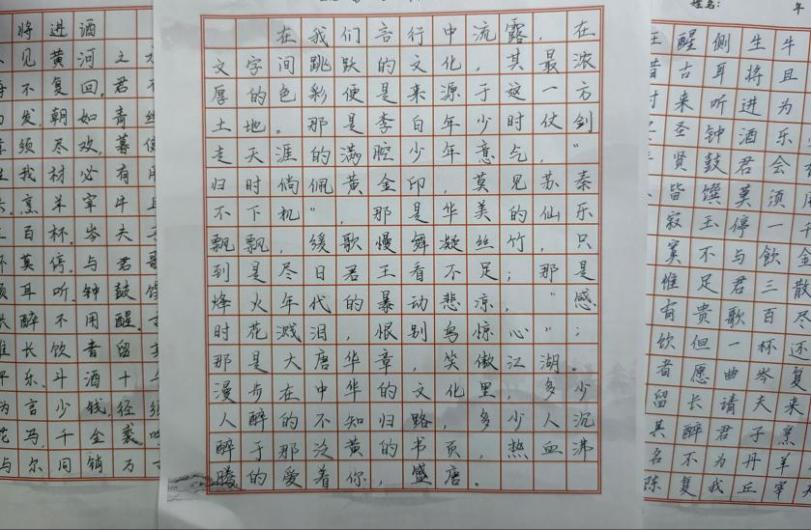 将进酒
见黄河之
不复回，君不
发，朝如青丝
须尽欢，莫使
我材必有用
烹羊宰牛且
百杯，岑夫
莫停，与君歌
耳听，钟鼓馔
醉不用醒，
长饮者留其
乐，斗酒十
言少钱，径须
马，千金裘，
与尔同销万
在我们言行中流露，在
文字间跳跃的文化，其最浓
厚的色彩便是来源于这一方
土地。那是李白年少时仗剑
走天涯的满腔少年意气，"
归时倘佩黄金印，莫见苏秦
不下机"，那是华美的仙乐
飘飘，缓歌慢舞凝丝竹，只
到是尽日君王看不足；那是
烽火年代的暴动悲凉，"感
时花溅泪，恨别鸟惊心"；
那是大唐华章，笑傲江湖。
漫步在中华的文化里，多少
人醉的不知归路，多少人沉
醉于那泛黄的书页，热血沸
腾的爱着你，盛唐。
姓名：
年
千金散尽还复来烹羊宰
牛且为乐会须一饮三百杯岑夫子丹丘
生将进酒君莫停与君歌一曲请君为我
侧耳听钟鼓馔玉不足贵但愿长醉不复
醒古来圣贤皆寂寞惟有饮者留其名陈